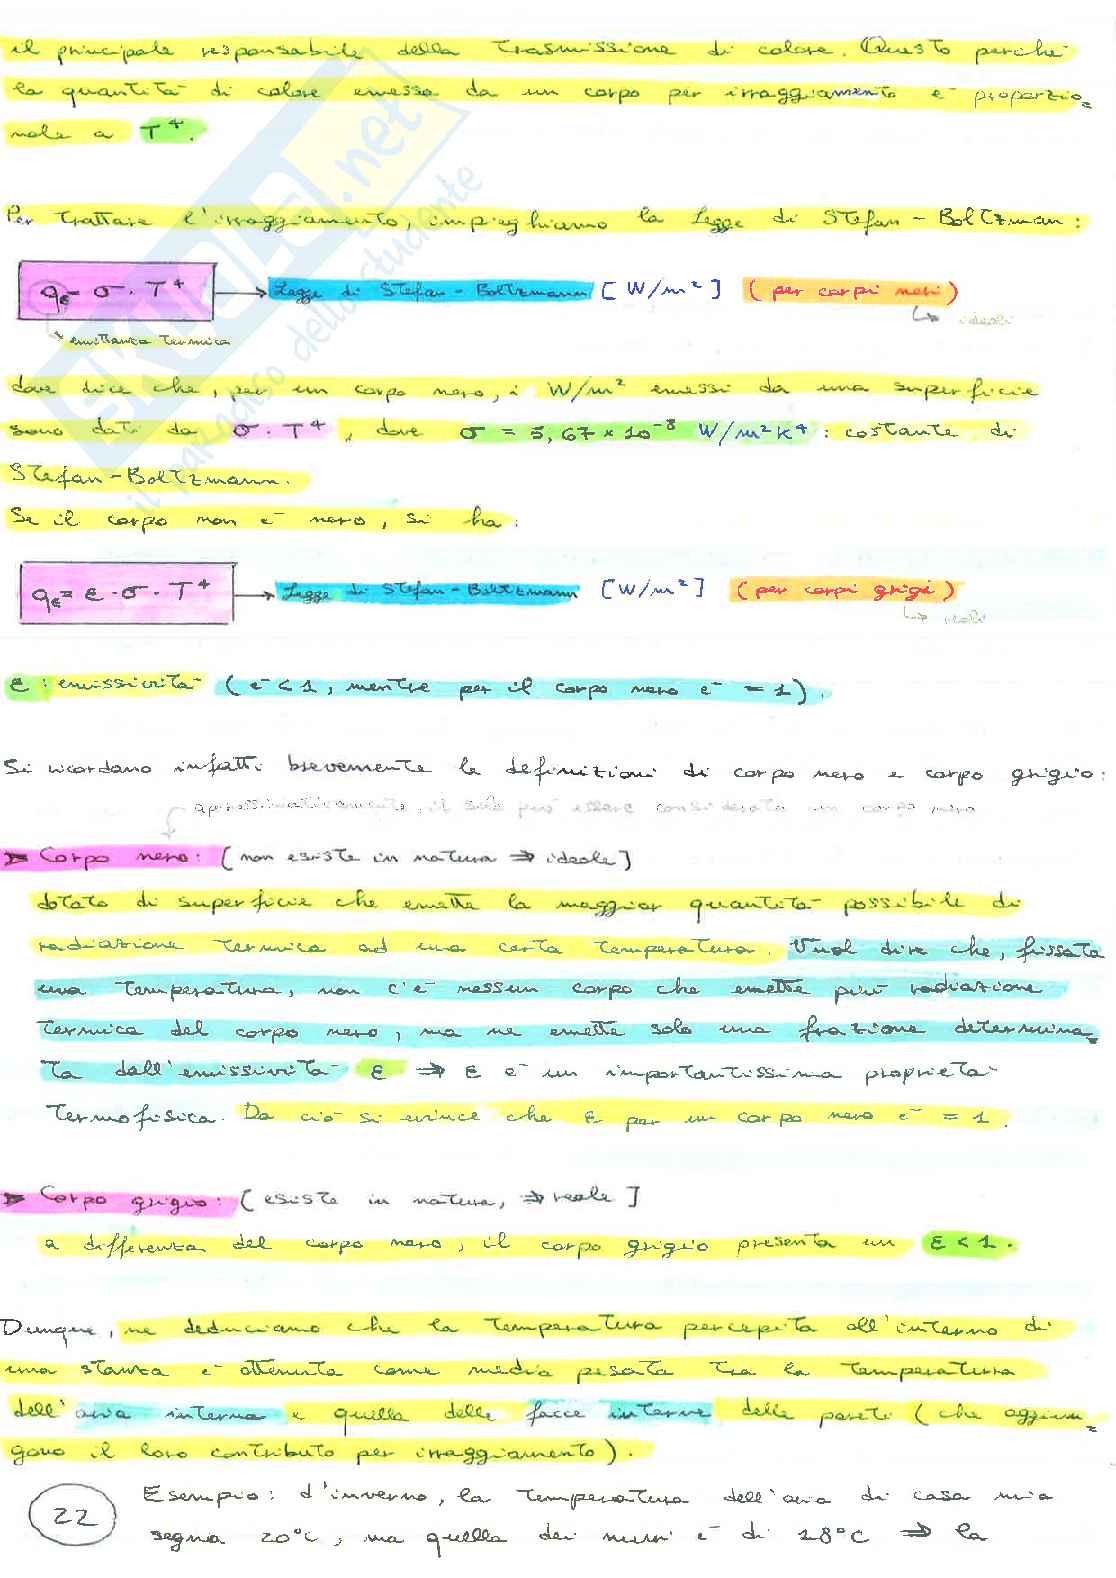 il principale responsabile della trasmissione di calore. Questo perché
la quantità di calore emessa da un corpo per irraggiamento è proporzio=
nale a T⁴.
Per trattare l'irraggiamento, impieghiamo la Legge di Stefan-Boltzman:
qε = σ · T⁴ → Legge di Stefan-Boltzmann [W/m²] (per corpi neri)
↳ ideali
↳ emittanza termica
dove dice che, per un corpo nero, i W/m² emessi da una superficie
sono dati da σ · T⁴, dove σ = 5,67 × 10⁻⁸ W/m²K⁴: costante di
Stefan-Boltzmann.
Se il corpo non è nero, si ha:
qε = ε · σ · T⁴ → Legge di Stefan-Boltzmann [W/m²] (per corpi grigi)
↳ reali
ε: emissività (è < 1, mentre per il corpo nero è = 1).
Si ricordano infatti brevemente le definizioni di corpo nero e corpo grigio:
approssimativamente, il sole può essere considerato un corpo nero
➤ Corpo nero: [non esiste in natura ⇒ ideale]
dotato di superficie che emette la maggior quantità possibile di
radiazione termica ad una certa temperatura. Vuol dire che, fissata
una temperatura, non c'è nessun corpo che emette più radiazione
termica del corpo nero, ma ne emette solo una frazione determina=
ta dall'emissività ε ⇒ ε è un importantissima proprietà
termofisica. Da ciò si evince che ε per un corpo nero è = 1.
➤ Corpo grigio: [esiste in natura, ⇒ reale]
a differenza del corpo nero, il corpo grigio presenta un ε < 1.
Dunque, ne deduciamo che la temperatura percepita all'interno di
una stanza è ottenuta come media pesata tra la temperatura
dell'aria interna e quella delle facce interne delle pareti (che aggiun=
gono il loro contributo per irraggiamento).
Esempio: d'inverno, la temperatura dell'aria di casa mia
22 segna 20°C, ma quella dei muri è di 18°C ⇒ la
SKUOLA.net
il paradiso dello studente